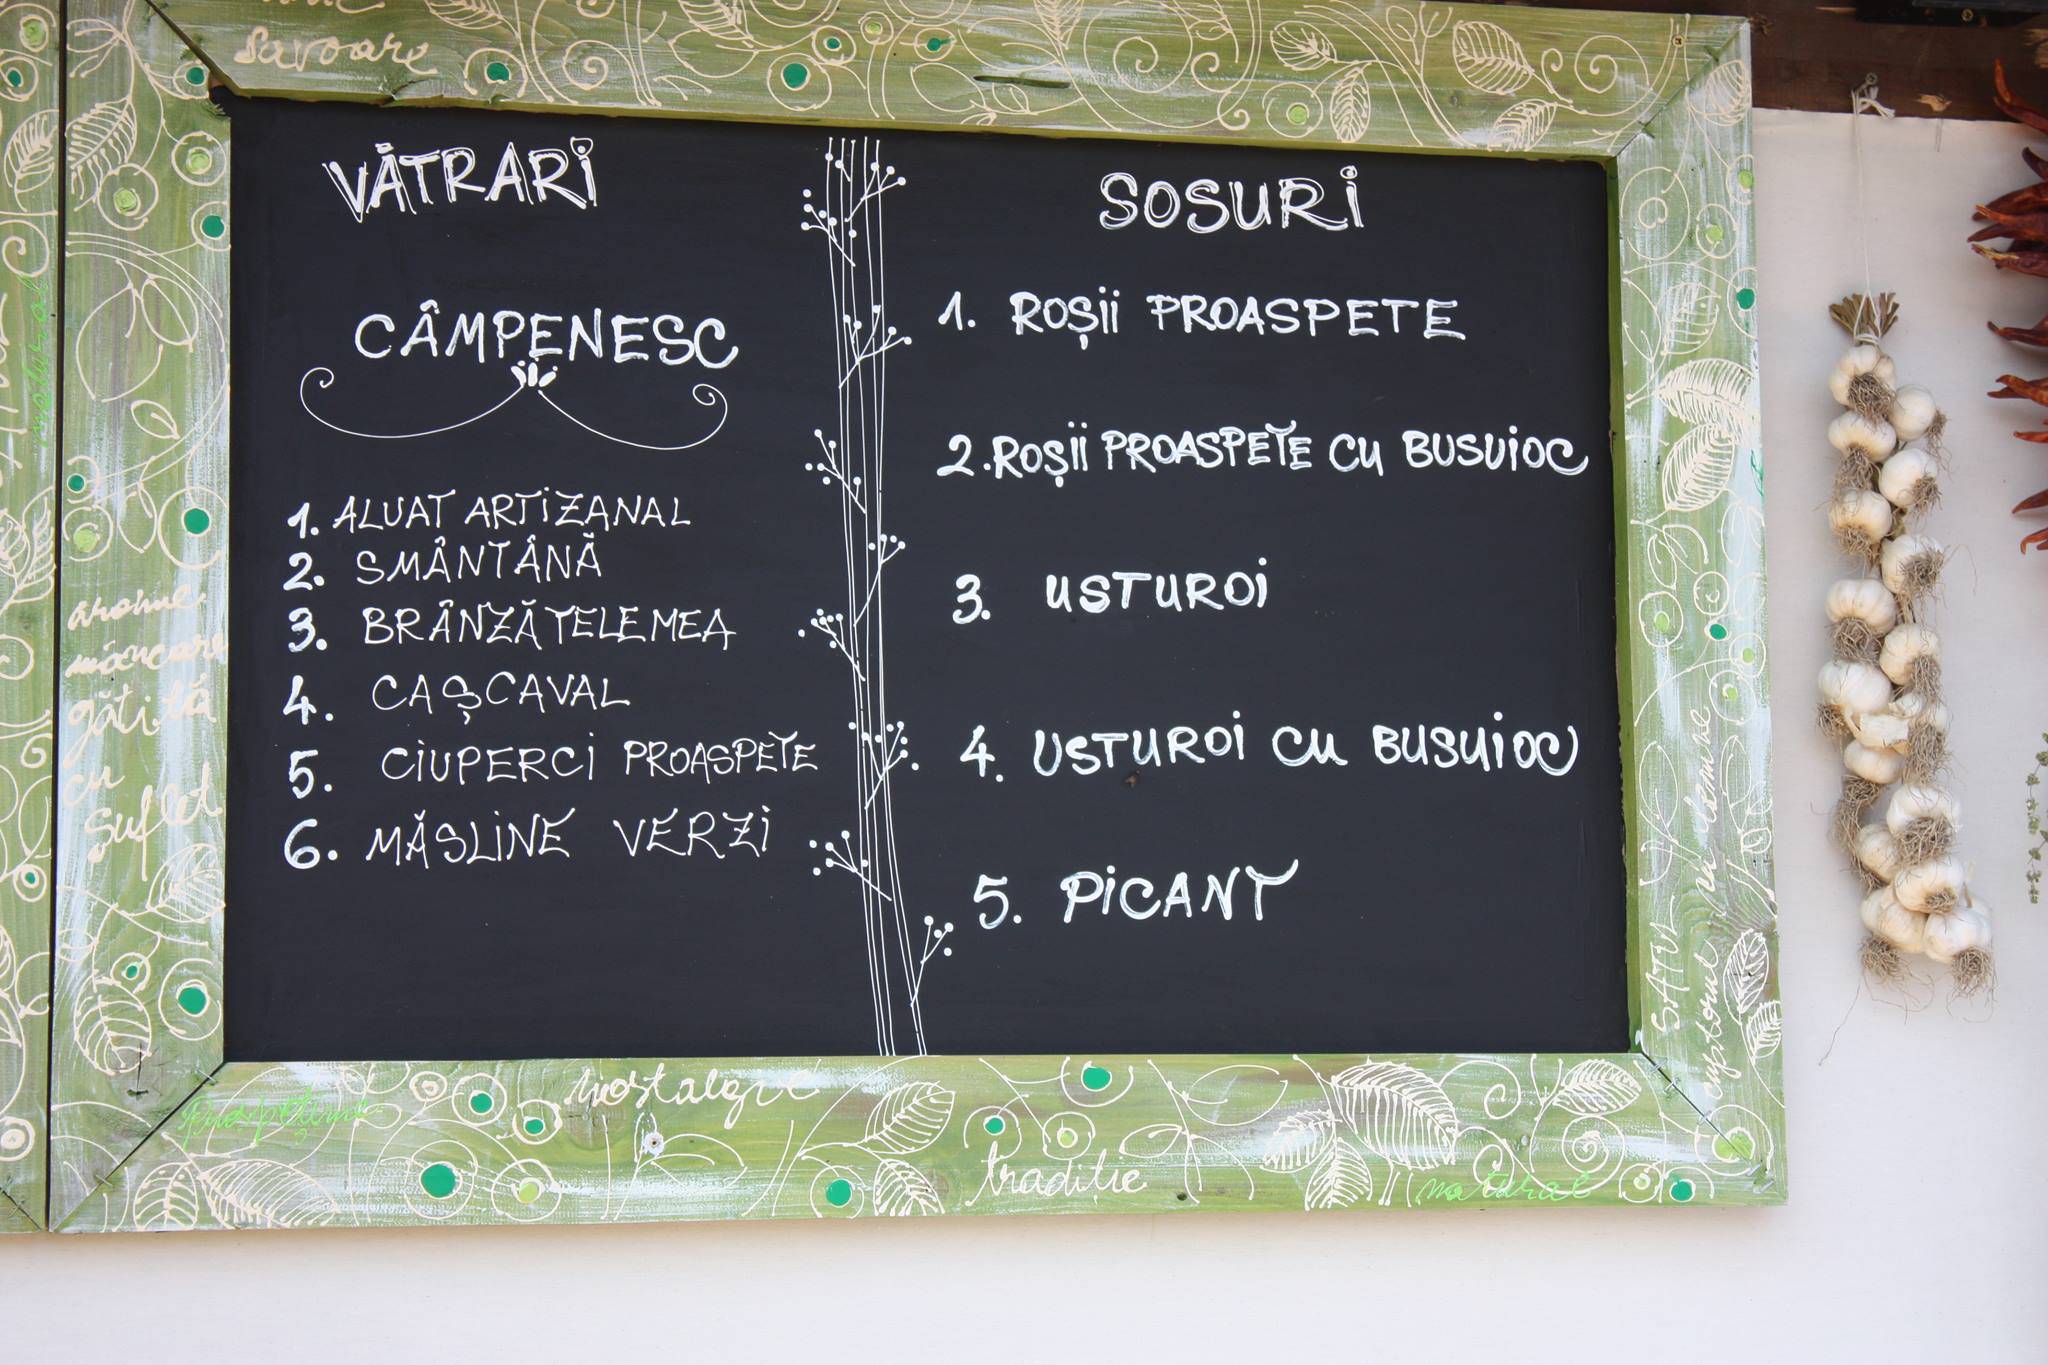 savoare
VĂTRARI
CÂMPENESC
1. ALUAT ARTIZANAL
2. SMÂNTÂNĂ
3. BRÂNZĂ TELEMEA
4. CAȘCAVAL
5. CIUPERCI PROASPETE
6. MĂSLINE VERZI
SOSURI
1. ROȘII PROASPETE
2. ROȘII PROASPETE CU BUSUIOC
3. USTUROI
4. USTUROI CU BUSUIOC
5. PICANT
natural
arome
mâncare
gătită
cu
suflet
nostalgie
tradiție
natural
SATUL cu lemne